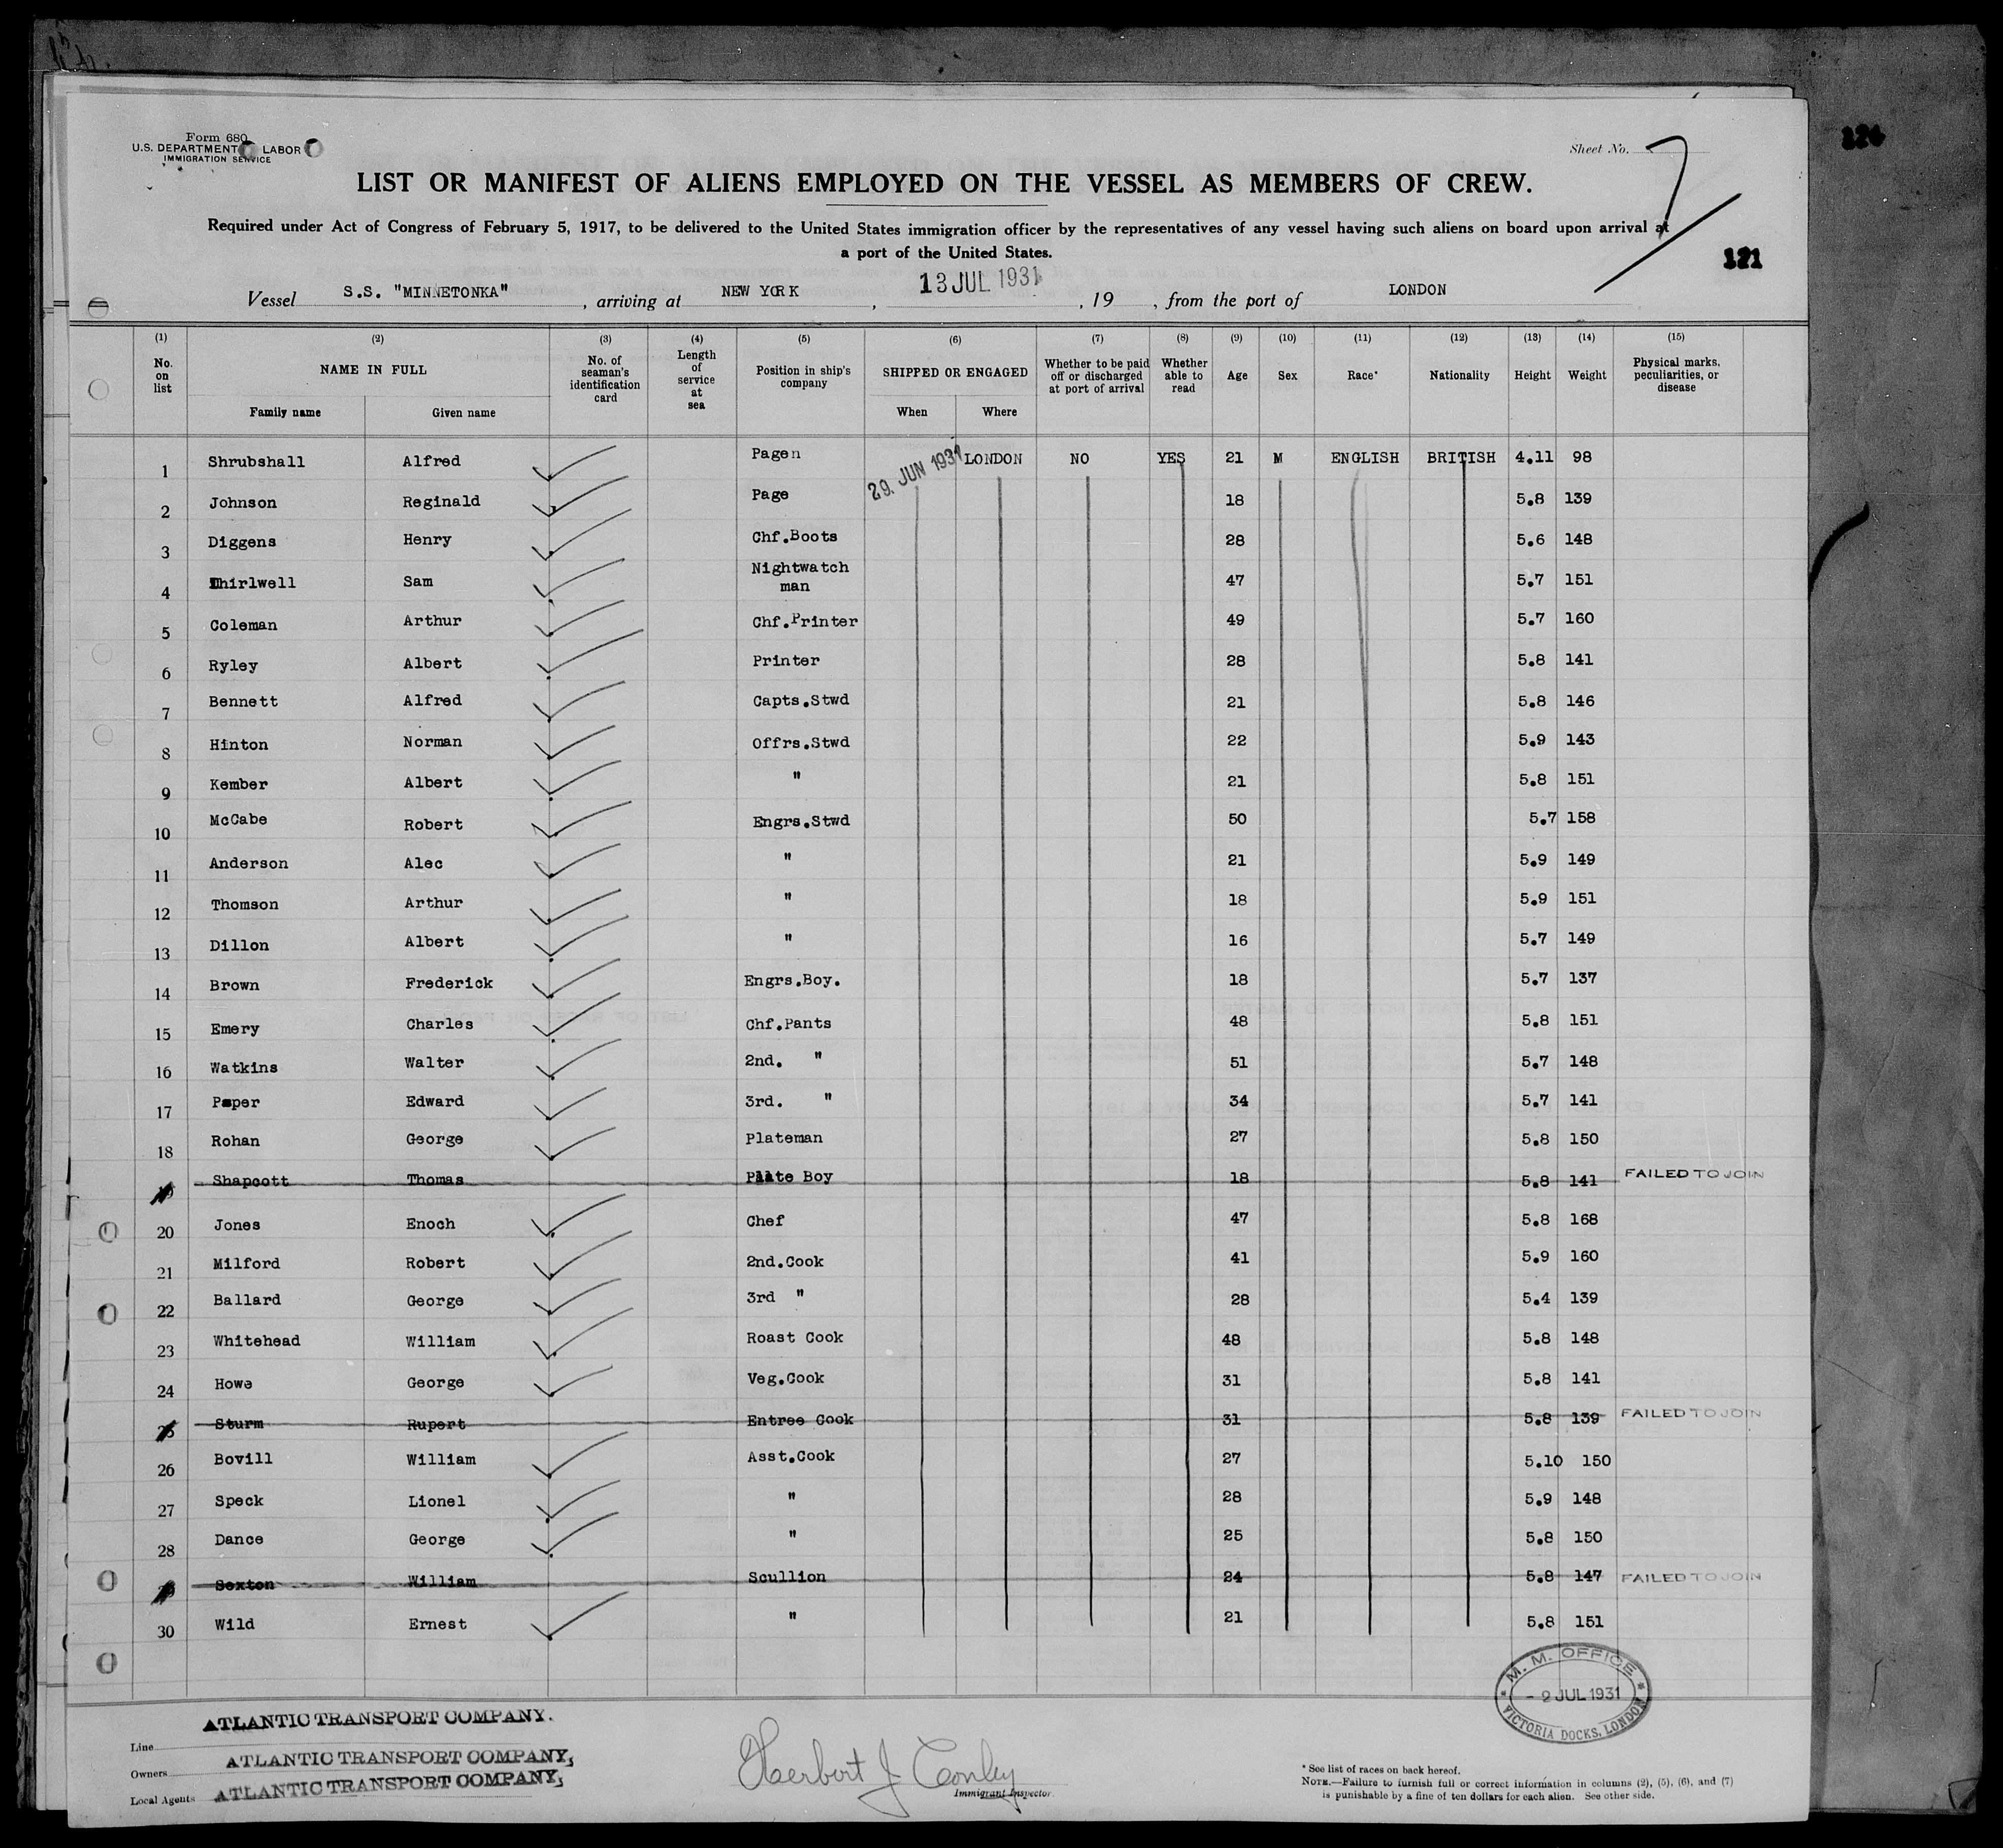 Form 680
U.S. DEPARTMENT LABOR
IMMIGRATION SERVICE
Sheet No. 7
LIST OR MANIFEST OF ALIENS EMPLOYED ON THE VESSEL AS MEMBERS OF CREW.
Required under Act of Congress of February 5, 1917, to be delivered to the United States immigration officer by the representatives of any vessel having such aliens on board upon arrival at
a port of the United States.
121
Vessel S.S. "MINNETONKA", arriving at NEW YORK, 13 JUL 1931, 19 , from the port of LONDON
(1) (2) (3) (4) (5) (6) (7) (8) (9) (10) (11) (12) (13) (14) (15)
No. on list NAME IN FULL Family name Given name No. of seaman's identification card Length of service at sea Position in ship's company SHIPPED OR ENGAGED When Where Whether to be paid off or discharged at port of arrival Whether able to read Age Sex Race* Nationality Height Weight Physical marks, peculiarities, or disease
1 Shrubshall Alfred Pagen 29. JUN 1931 LONDON NO YES 21 M ENGLISH BRITISH 4.11 98
2 Johnson Reginald Page 18 5.8 139
3 Diggens Henry Chf.Boots 28 5.6 148
4 Thirlwell Sam Nightwatch man 47 5.7 151
5 Coleman Arthur Chf.Printer 49 5.7 160
6 Ryley Albert Printer 28 5.8 141
7 Bennett Alfred Capts.Stwd 21 5.8 146
8 Hinton Norman Offrs.Stwd 22 5.9 143
9 Kember Albert " 21 5.8 151
10 McCabe Robert Engrs.Stwd 50 5.7 158
11 Anderson Alec " 21 5.9 149
12 Thomson Arthur " 18 5.9 151
13 Dillon Albert " 16 5.7 149
14 Brown Frederick Engrs.Boy. 18 5.7 137
15 Emery Charles Chf.Pants 48 5.8 151
16 Watkins Walter 2nd. " 51 5.7 148
17 Edward 3rd. " 34 5.7 141
18 Rohan George Plateman 27 5.8 150
19 Shapcott Thomas Plate Boy 18 5.8 141 FAILED TO JOIN
20 Jones Enoch Chef 47 5.8 168
21 Milford Robert 2nd.Cook 41 5.9 160
22 Ballard George 3rd " 28 5.4 139
23 Whitehead William Roast Cook 48 5.8 148
24 Howe George Veg.Cook 31 5.8 141
25 Sturm Rupert Entree Cook 31 5.8 139 FAILED TO JOIN
26 Bovill William Asst.Cook 27 5.10 150
27 Speck Lionel " 28 5.9 148
28 Dance George " 25 5.8 150
29 Sexton William Scullion 24 5.8 147 FAILED TO JOIN
30 Wild Ernest " 21 5.8 151
M. M. OFFICE
- 2 JUL 1931
VICTORIA DOCKS, LONDON
Line ATLANTIC TRANSPORT COMPANY.
Owners ATLANTIC TRANSPORT COMPANY,
Local Agents ATLANTIC TRANSPORT COMPANY,
Herbert J Conley
Immigrant Inspector.
* See list of races on back hereof.
NOTE.—Failure to furnish full or correct information in columns (2), (5), (6), and (7)
is punishable by a fine of ten dollars for each alien. See other side.